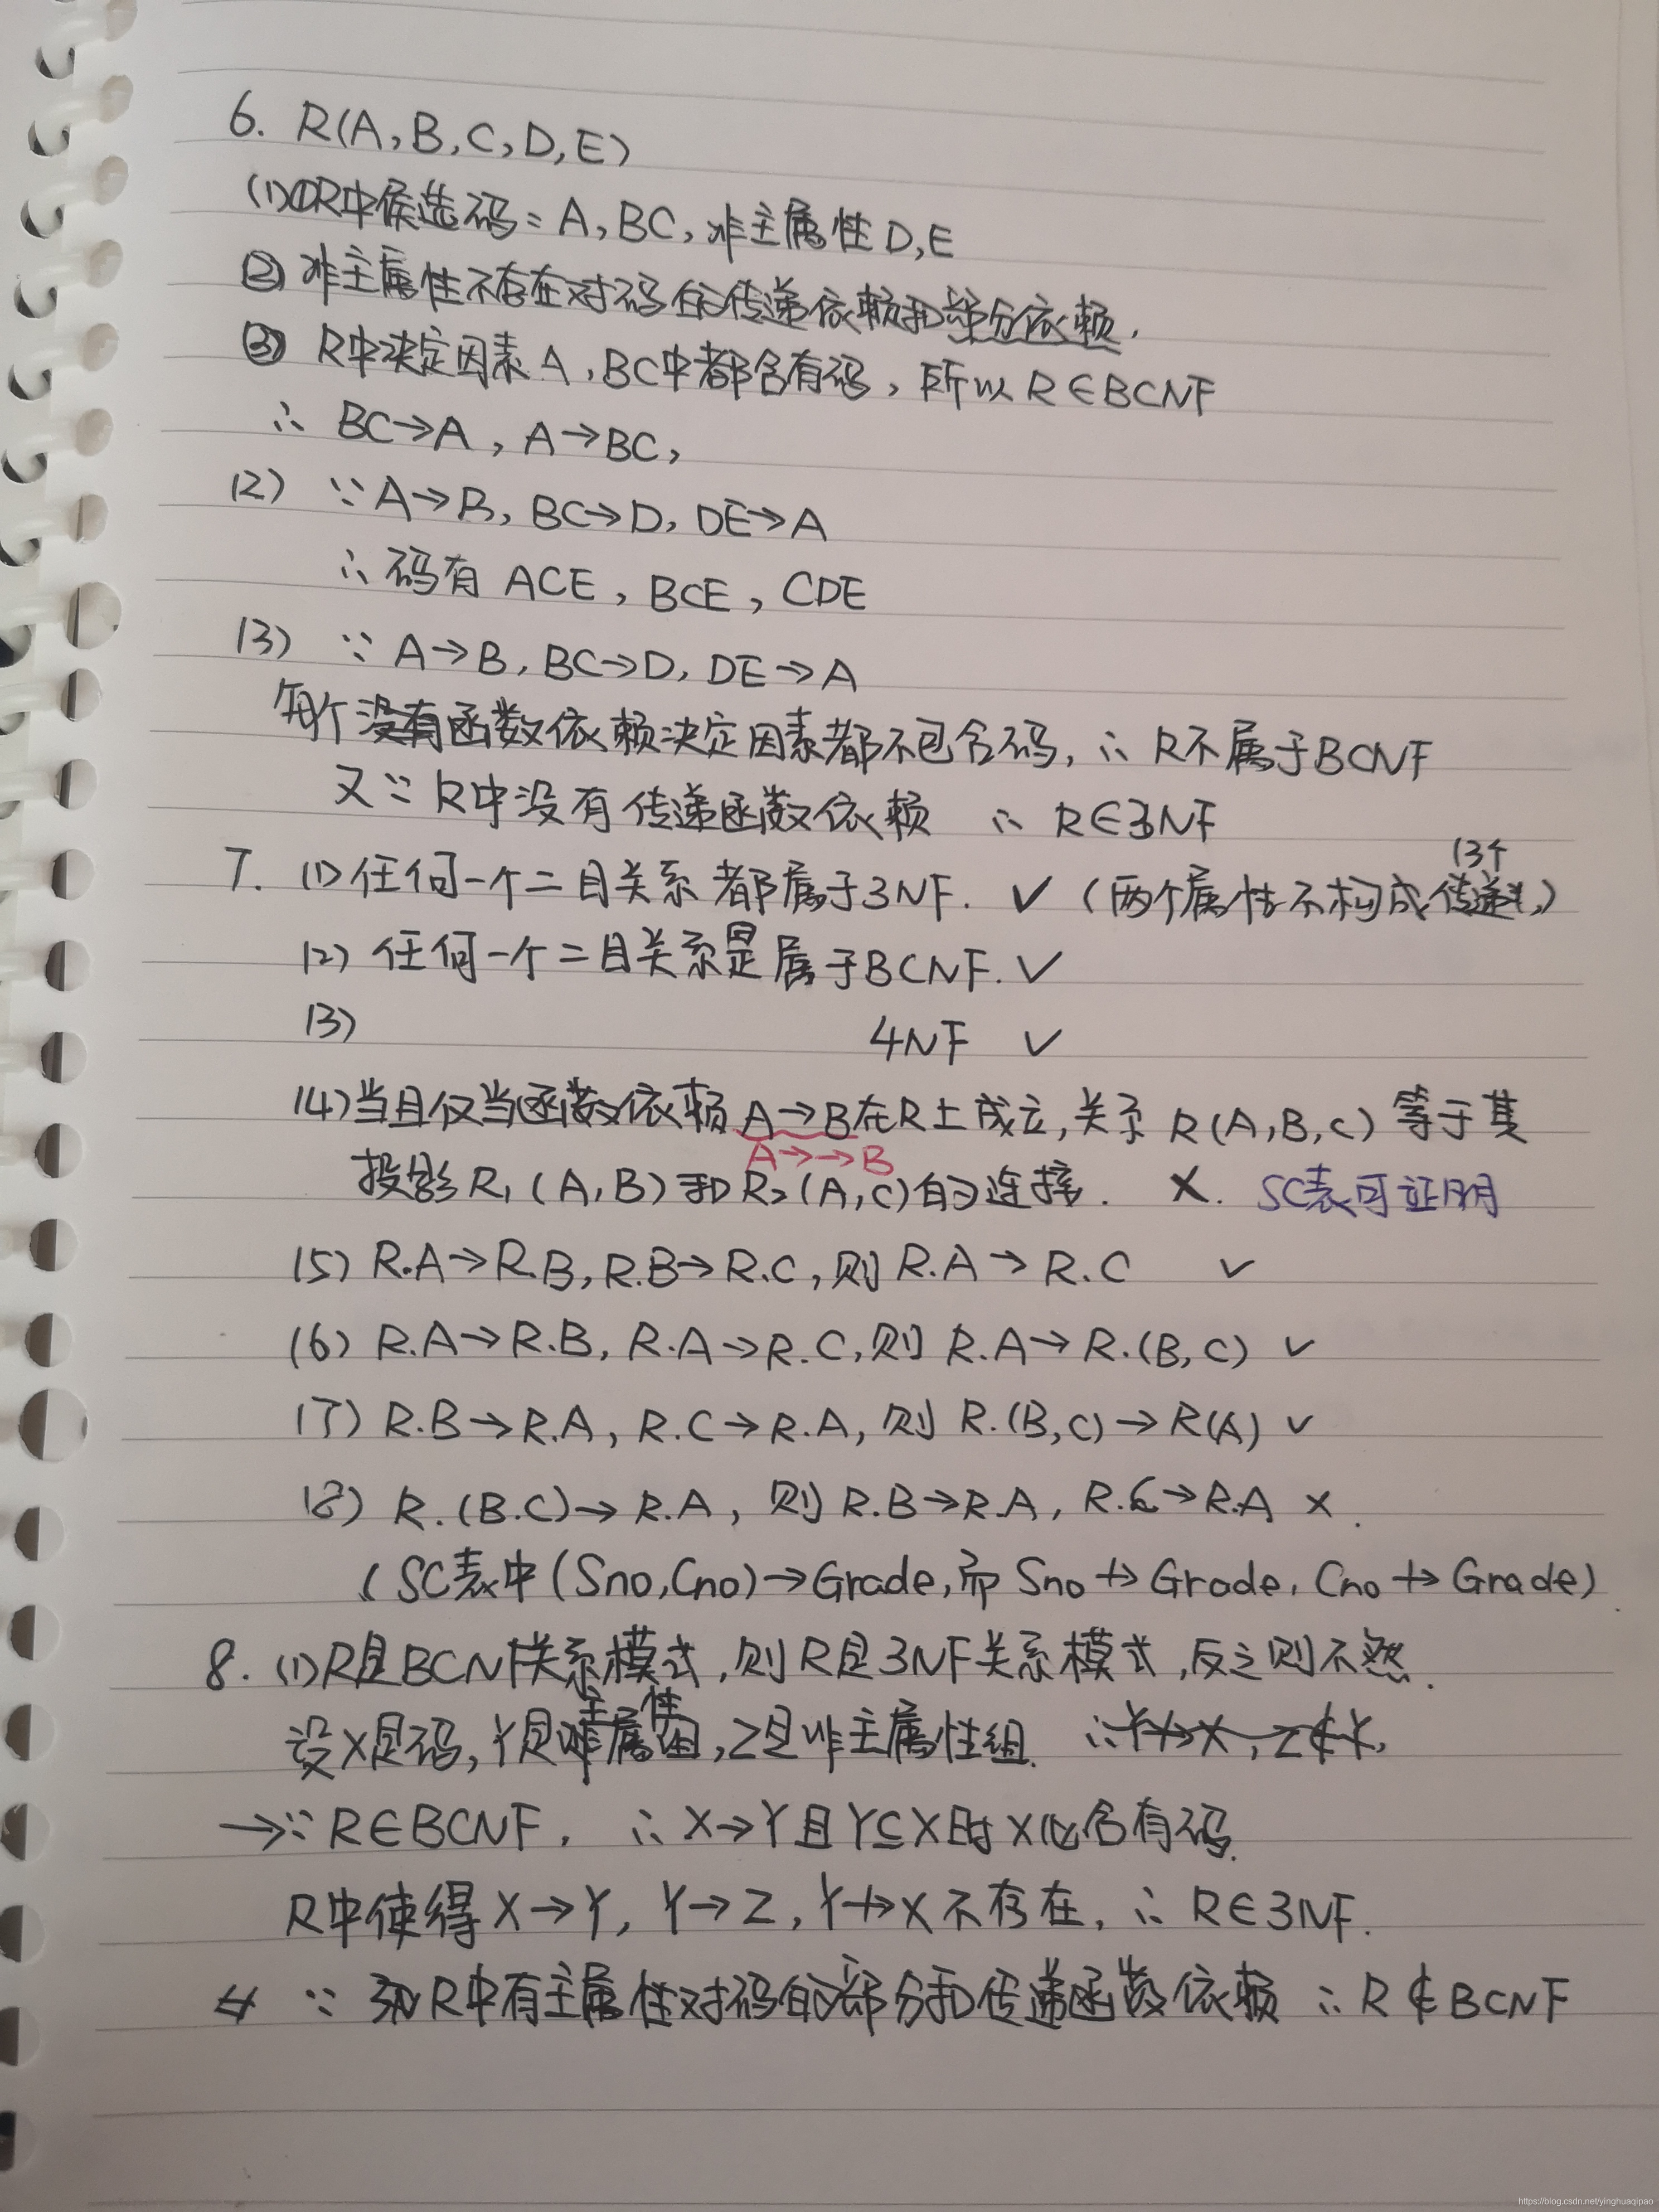 6. R(A,B,C,D,E)
(1)①R中候选码：A,BC,非主属性D,E
② 非主属性不存在对码的传递依赖和部分依赖.
③ R中决定因素A,BC中都含有码，所以R∈BCNF
∴ BC→A , A→BC,
(2) ∵A→B, BC→D, DE→A
∴码有 ACE, BCE, CDE
(3) ∵ A→B, BC→D, DE→A
每个函数依赖决定因素都不包含码，∴ R不属于BCNF
又∵R中没有传递函数依赖 ∴ R∈3NF
(3个
7. (1)任何一个二目关系都属于3NF. ✓ (两个属性不构成传递,)
(2) 任何一个二目关系是属于BCNF. ✓
(3) 4NF ✓
(4)当且仅当函数依赖A→B在R上成立,关系 R(A,B,C) 等于其
A→→B
投影R₁(A,B)和R₂(A,C)的连接. ×. SC表可证明
(5) R.A→R.B, R.B→R.C,则R.A→R.C ✓
(6) R.A→R.B, R.A→R.C,则 R.A→R.(B,C) ✓
(7) R.B→R.A, R.C→R.A, 则 R.(B,C)→R(A) ✓
(8) R.(B.C)→R.A, 则R.B→R.A, R.C→R.A ×.
(SC表中(Sno,Cno)→Grade,而 Sno↛Grade, Cno↛Grade)
8. (1)R是BCNF关系模式,则R是3NF关系模式,反之则不然.
主 性
设X是码,Y是属组,Z是非主属性组. ∴Y↛X, Z∉Y,
→∵R∈BCNF, ∴X→Y且Y⊆X时X必含有码.
R中使得X→Y, Y→Z, Y↛X不存在, ∴ R∈3NF.
∵ R中有主属性对码的部分和传递函数依赖 ∴R∉BCNF
https://blog.csdn.net/yinghuaqipao